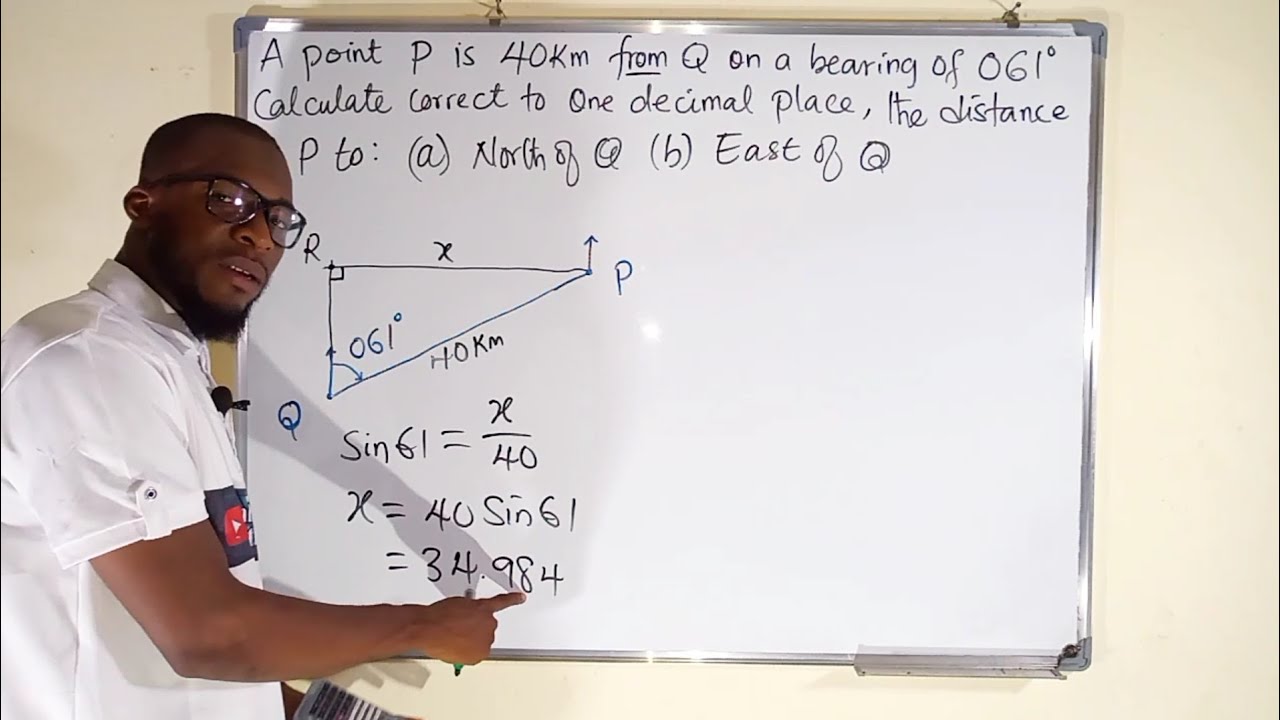 A point P is 40Km from Q on a bearing of 061°
Calculate correct to One decimal place, the distance
P to: (a) North of Q (b) East of Q
R
x
P
061°
40Km
Q
Sin61 = x/40
x = 40 Sin61
= 34.984